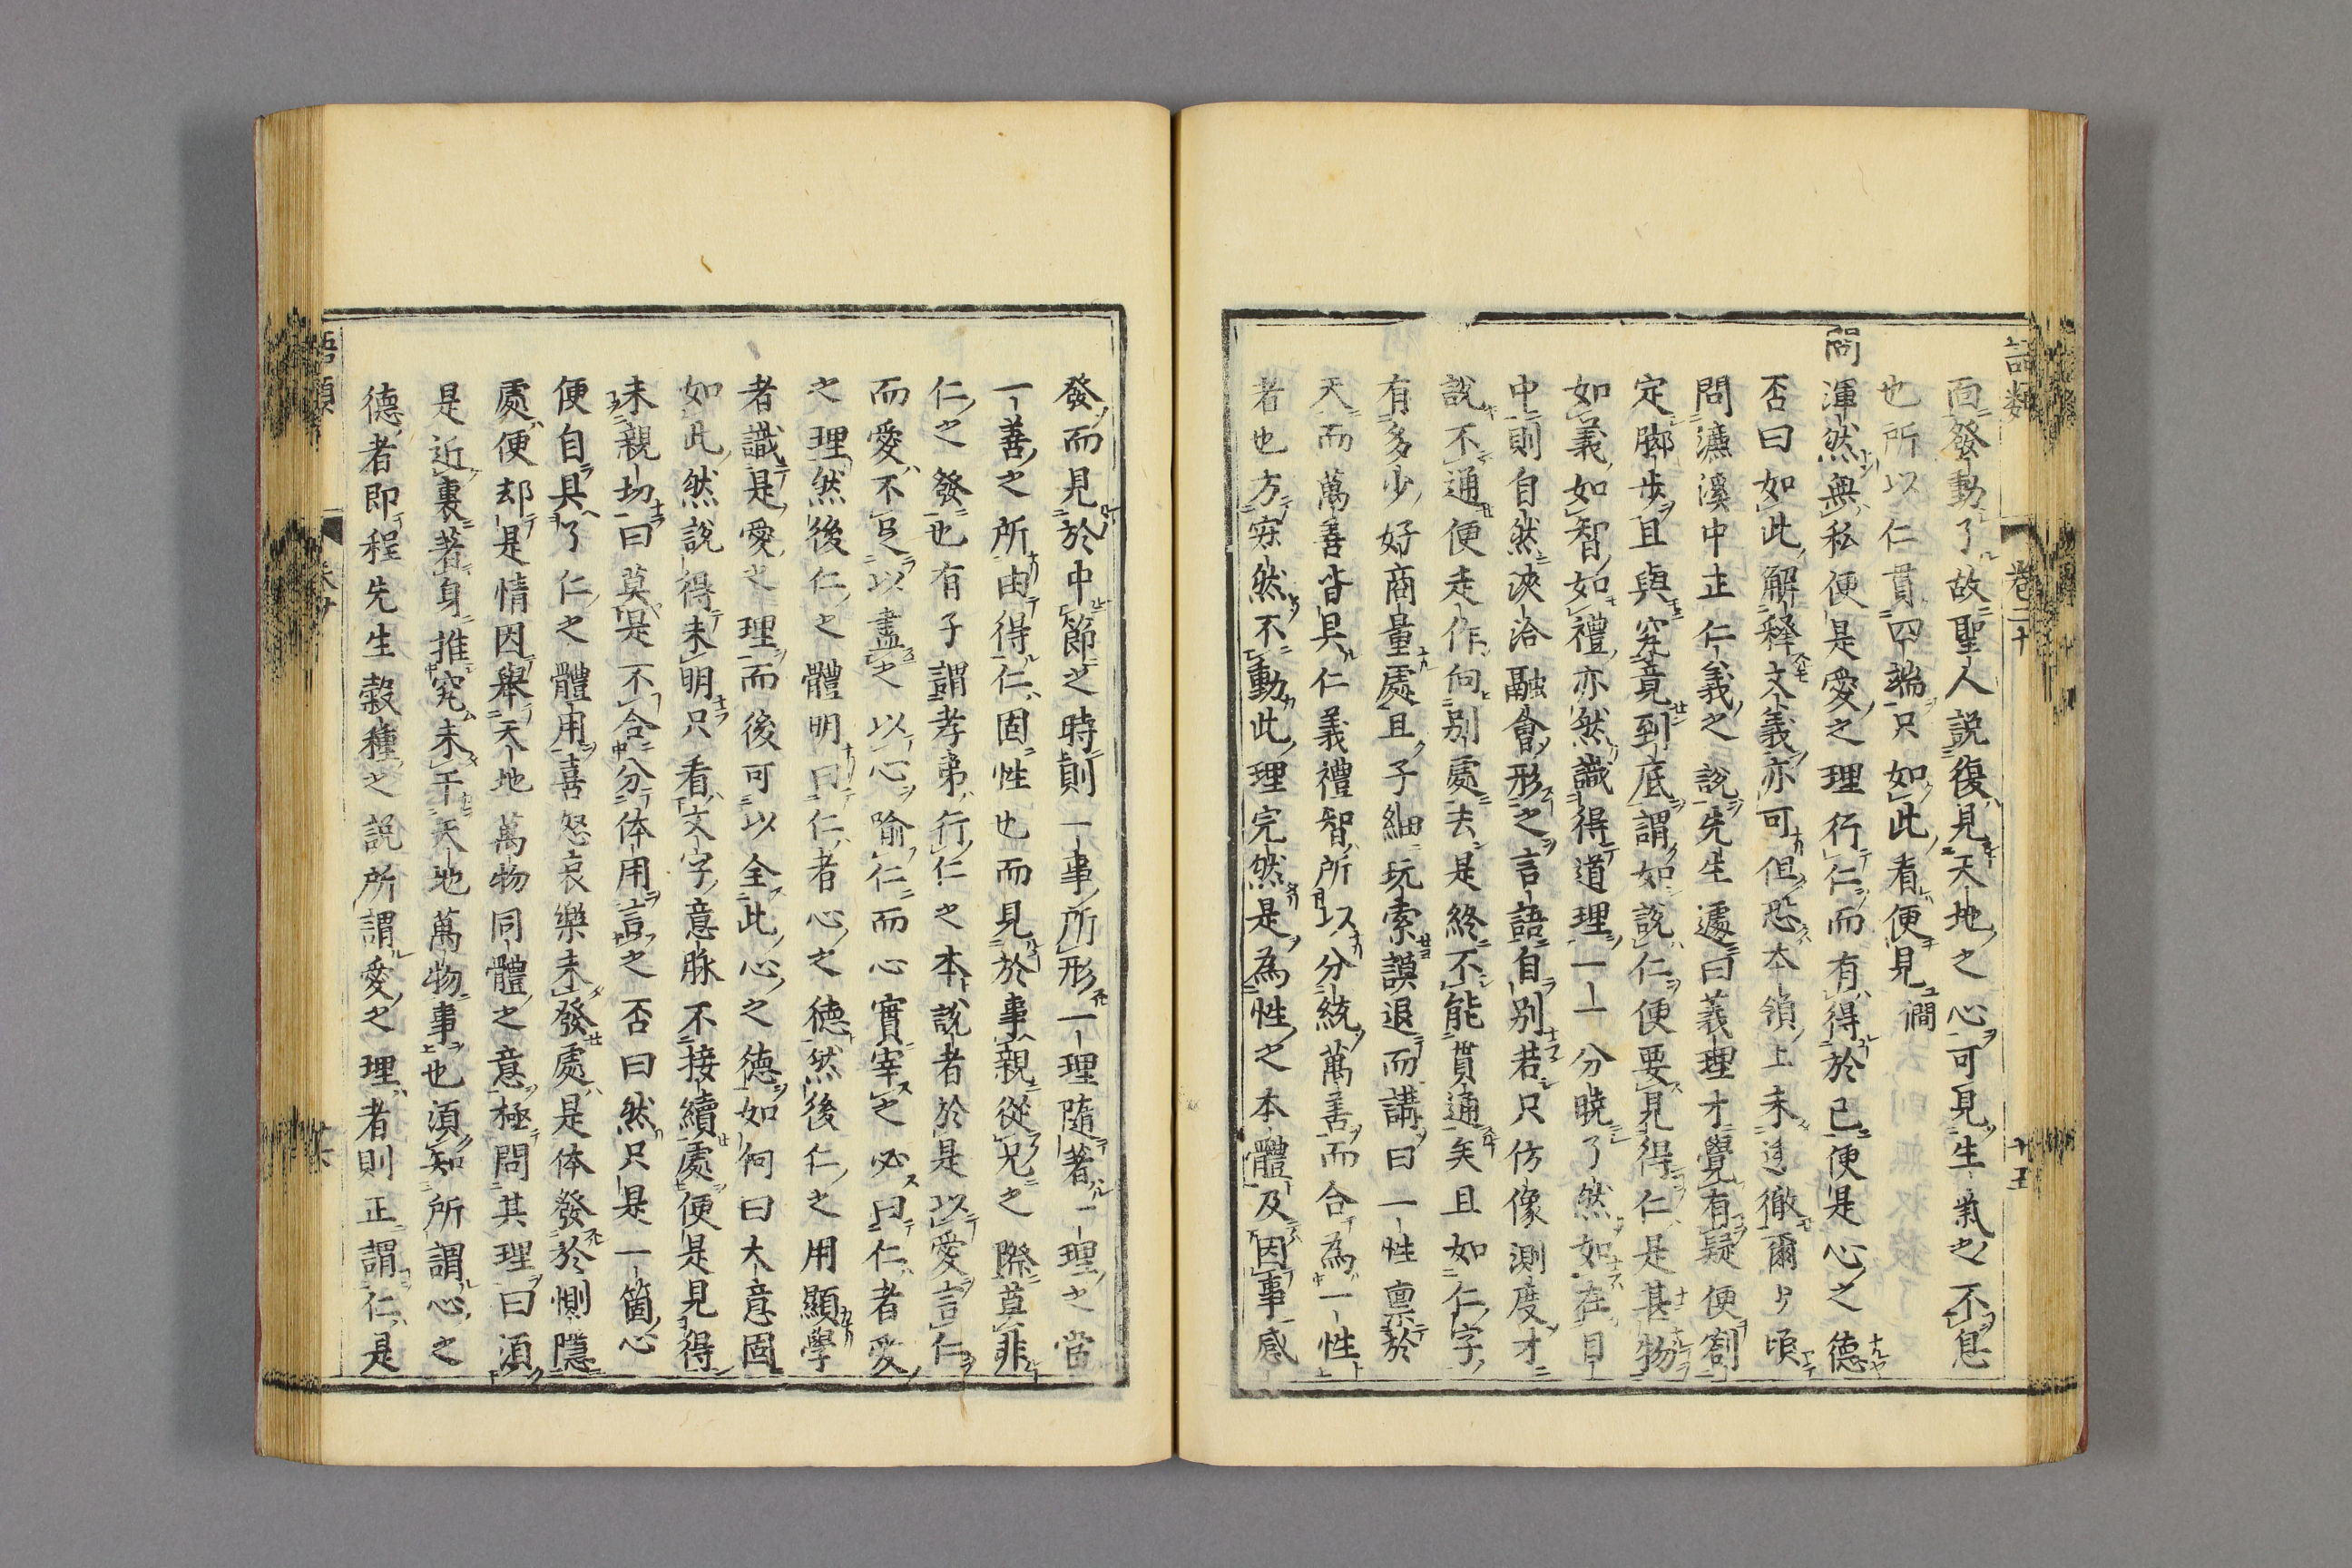 語類 卷二十 十五
而發動了故聖人説復見天地之心可見生氣之不息
也所以仁貫四端只如此看便見 僩
問渾然無私便是愛之理行仁而有得於己便是心之德
否曰如此解释文義亦可但恐本領上未透徹爾少頃
問濂溪中正仁義之説先生遽曰義理才覺有疑便劄
定脚步且與究竟到底謂如説仁便要見得仁是甚物
如義如智如禮亦然識得道理一一分曉了然如在目
中則自然浹洽融會形之言語自别若只仿像測度才
説不通便走作向别處去是終不能貫通矣且如仁字
有多少好商量處且子細玩索謨退而講曰一性禀於
天而萬善皆具仁義禮智所以分統萬善而合為一性
者也方寂然不動此理完然是為性之本體及因事感
發而見於中節之時則一事所形一理隨著一理之當
一善之所由得仁固性也而見於事親從兄之際莫非
仁之發也有子謂孝弟行仁之本説者於是以愛言仁
而愛不足以盡之以心喻仁而心實宰之必曰仁者愛
之理然後仁之體明曰仁者心之德然後仁之用顯學
者識是愛之理而後可以全此心之德如何曰大意固
如此然説得未明只看文字意脉不接續處便是見得
未親切曰莫是不合分体用言之否曰然只是一箇心
便自具了仁之體用喜怒哀樂未發處是体發於惻隱
處便却是情因舉天地萬物同體之意極問其理曰須
是近裏著身推究未干天地萬物事也須知所謂心之
德者即程先生穀種之説所謂愛之理者則正謂仁是
語類